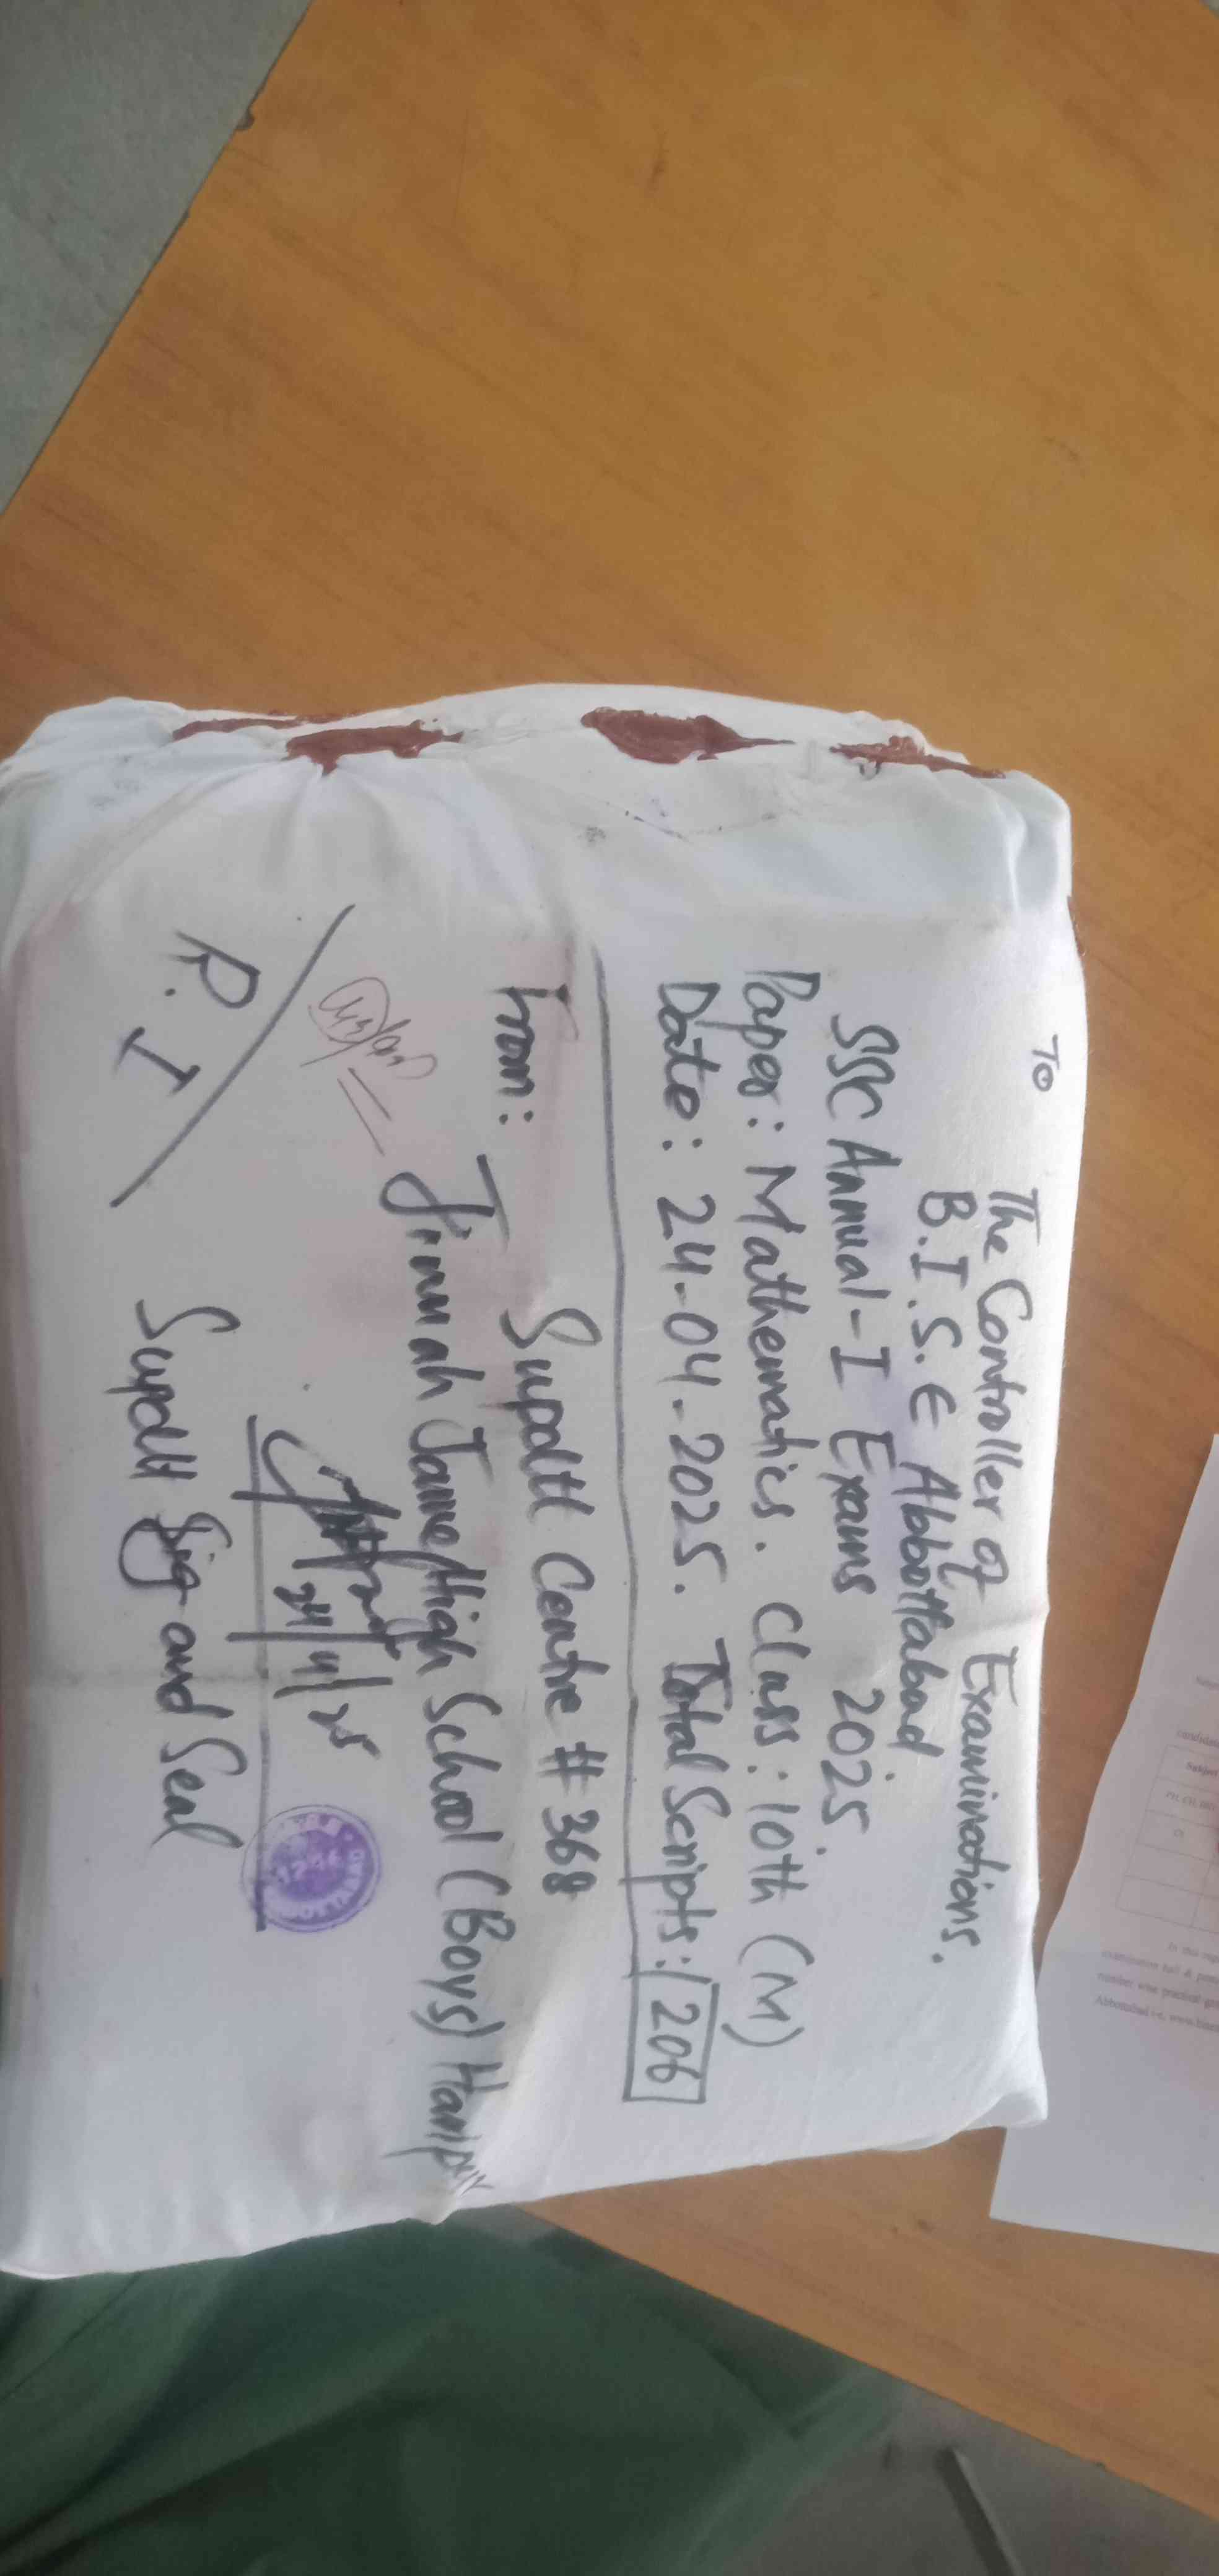 To
The Controller of Examinations.
B.I.S.E Abbottabad
SSC Annual-I Exams 2025.
Paper: Mathematics. Class: 10th (M)
Date: 24-04-2025. Total Scripts: 206
From: Supdtt Centre # 368
Jinnah Jame High School (Boys) Haripur
24/4/25
R.I
Supdtt Sig and Seal